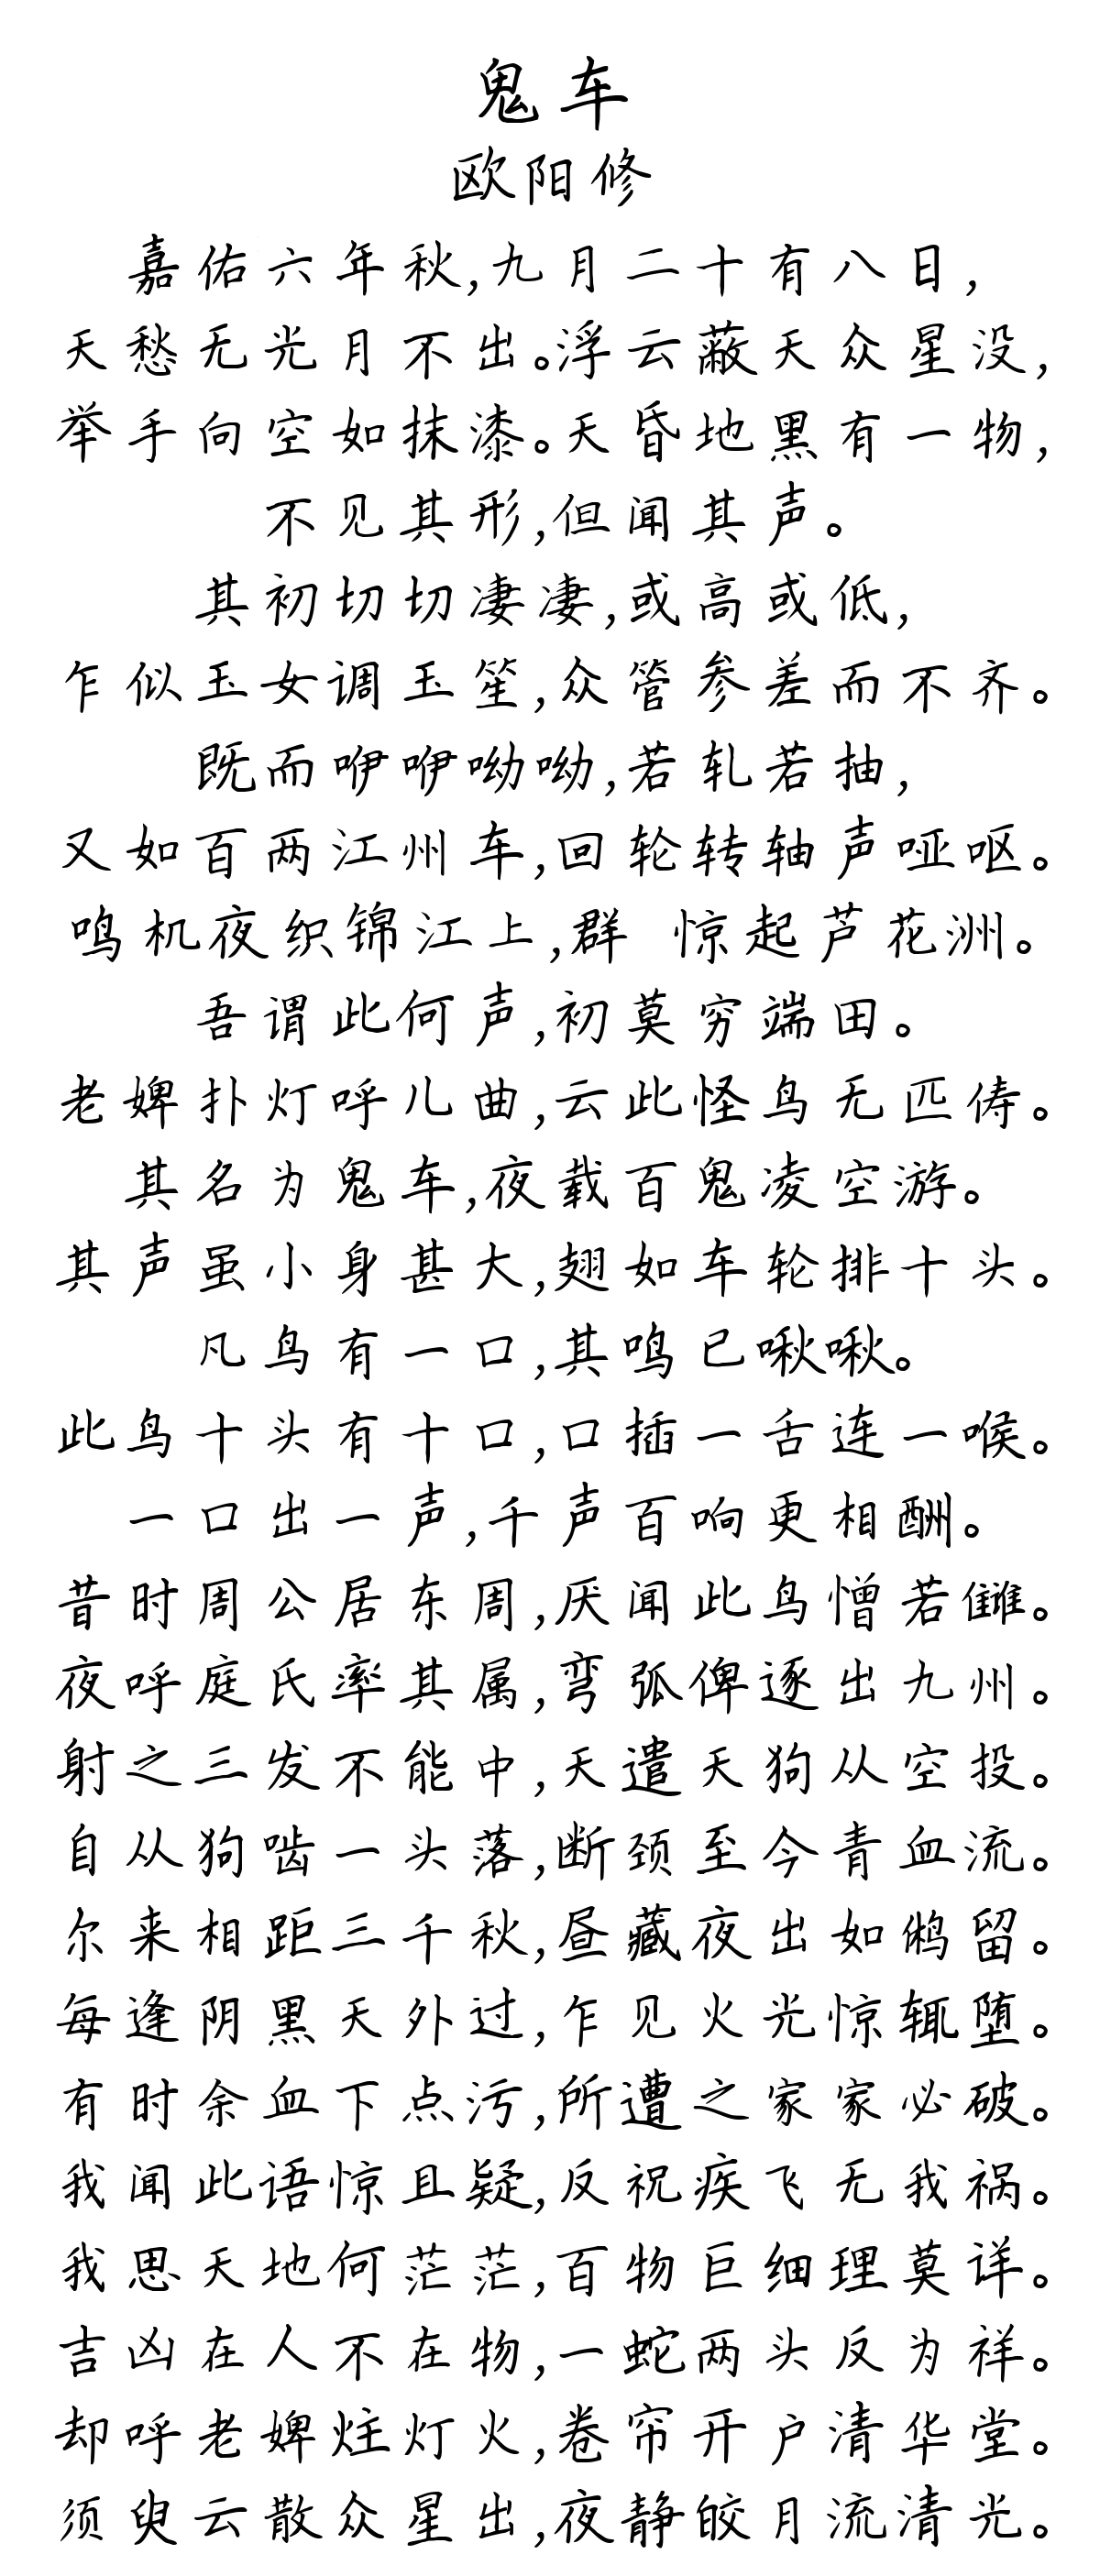 鬼车
欧阳修
嘉佑六年秋,九月二十有八日,
天愁无光月不出。浮云蔽天众星没,
举手向空如抹漆。天昏地黑有一物,
不见其形,但闻其声。
其初切切凄凄,或高或低,
乍似玉女调玉笙,众管参差而不齐。
既而咿咿呦呦,若轧若抽,
又如百两江州车,回轮转轴声哑呕。
鸣机夜织锦江上,群 惊起芦花洲。
吾谓此何声,初莫穷端田。
老婢扑灯呼儿曲,云此怪鸟无匹俦。
其名为鬼车,夜载百鬼凌空游。
其声虽小身甚大,翅如车轮排十头。
凡鸟有一口,其鸣已啾啾。
此鸟十头有十口,口插一舌连一喉。
一口出一声,千声百响更相酬。
昔时周公居东周,厌闻此鸟憎若雠。
夜呼庭氏率其属,弯弧俾逐出九州。
射之三发不能中,天遣天狗从空投。
自从狗啮一头落,断颈至今青血流。
尔来相距三千秋,昼藏夜出如鸺留。
每逢阴黑天外过,乍见火光惊辄堕。
有时余血下点污,所遭之家家必破。
我闻此语惊且疑,反祝疾飞无我祸。
我思天地何茫茫,百物巨细理莫详。
吉凶在人不在物,一蛇两头反为祥。
却呼老婢炷灯火,卷帘开户清华堂。
须臾云散众星出,夜静皎月流清光。